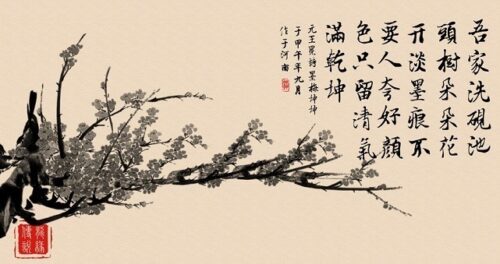 吾家洗硯池
頭樹朵朵花
开淡墨痕不
要人夸好顏
色只留清氣
滿乾坤
元王冕詩墨梅坤坤
于甲午年九月
作于河南